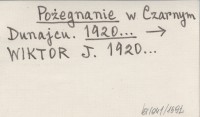 Pożegnanie w Czarnym
Dunajcu. 1920... →
WIKTOR J. 1920...